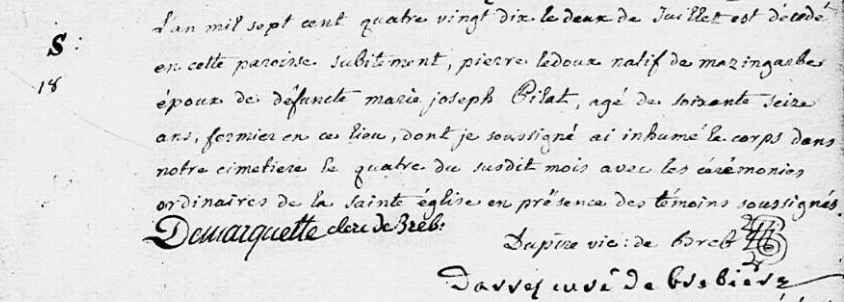 L'an mil sept cent quatre vingt dix le deux de Juillet est décédé
S:
en cette paroisse subitement, pierre ledoux natif de mazingarbe
18
époux de défuncte marie joseph Pilat, agé de soixante seize
ans, fermier en ce lieu, dont je soussigné ai inhumé le corps dans
notre cimetiere le quatre du susdit mois avec les cérémonies
ordinaires de la sainte église en présence des témoins soussignés.
Demarquette clerc de Breb:
Dupire vic: de Breb
curé de brebiere